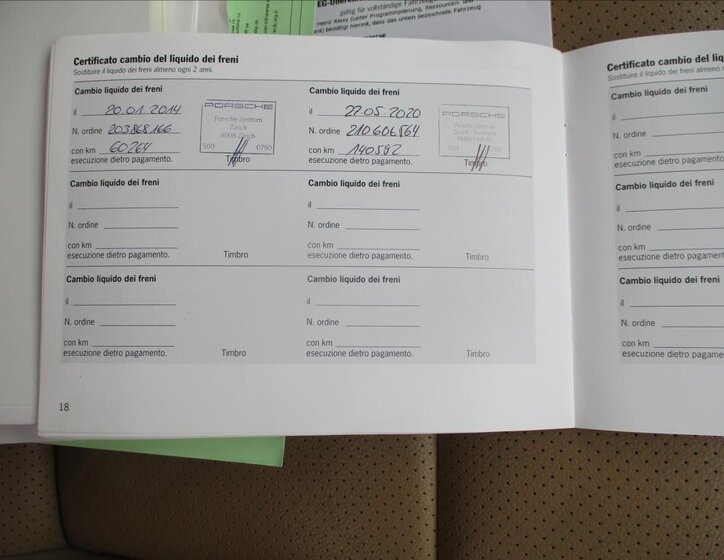 EG-Überein
gültig für vollständige Fahrzeug
Heinz Alexy (Leiter Programmplanung, Ressourcen- und
bestätigt hiermit, dass das unten bezeichnete Fahrzeug
Certificato cambio del liquido dei freni
Sostituire il liquido dei freni almeno ogni 2 anni.
Cambio liquido dei freni
il 20.01.2014
N. ordine 203868166
con km 60264
esecuzione dietro pagamento.
PORSCHE
Porsche Zentrum
Zürich
8008 Zürich
500 0750
Timbro
Cambio liquido dei freni
il 27.05.2020
N. ordine 210606564
con km 140592
esecuzione dietro pagamento.
PORSCHE
Porsche Zentrum
500
Timbro
Cambio liquido dei freni
il
N. ordine
con km
esecuzione dietro pagamento.
Timbro
Cambio liquido dei freni
il
N. ordine
con km
esecuzione dietro pagamento.
Timbro
Cambio liquido dei freni
il
N. ordine
con km
esecuzione dietro pagamento.
Timbro
Cambio liquido dei freni
il
N. ordine
con km
esecuzione dietro pagamento.
Timbro
18
Certificato cambio del liq
Sostituire il liquido dei freni almeno og
Cambio liquido dei freni
il
N. ordine
con km
esecuzione dietro pagam
Cambio liquido dei freni
il
N. ordine
con km
esecuzione dietro pagam
Cambio liquido dei freni
il
N. ordine
con km
esecuzione dietro pagame